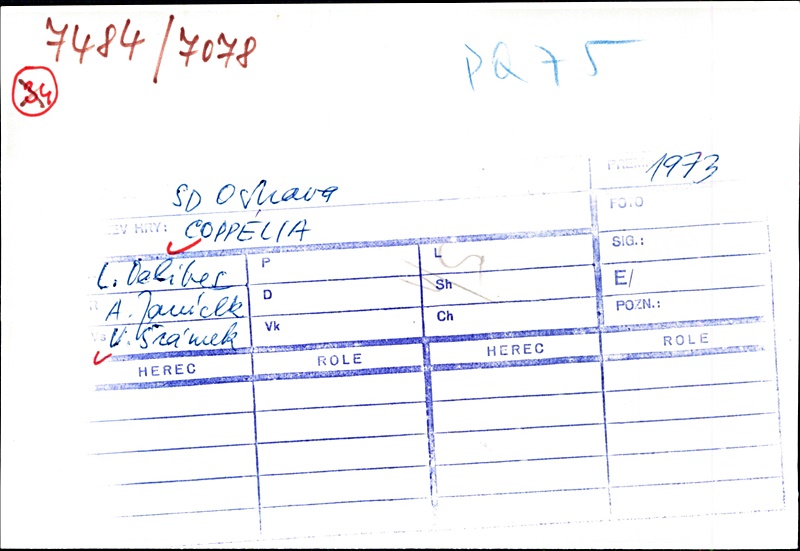 7484/7078
PQ 75
34
1973
SD Ostrava
FOTO
EV HRY: COPPÉLIA
SIG.:
P
L
L. Delibes
E/
D
Sh
A. Janíček
POZN.:
Vk
Ch
V. Šrámek
HEREC ROLE HEREC ROLE